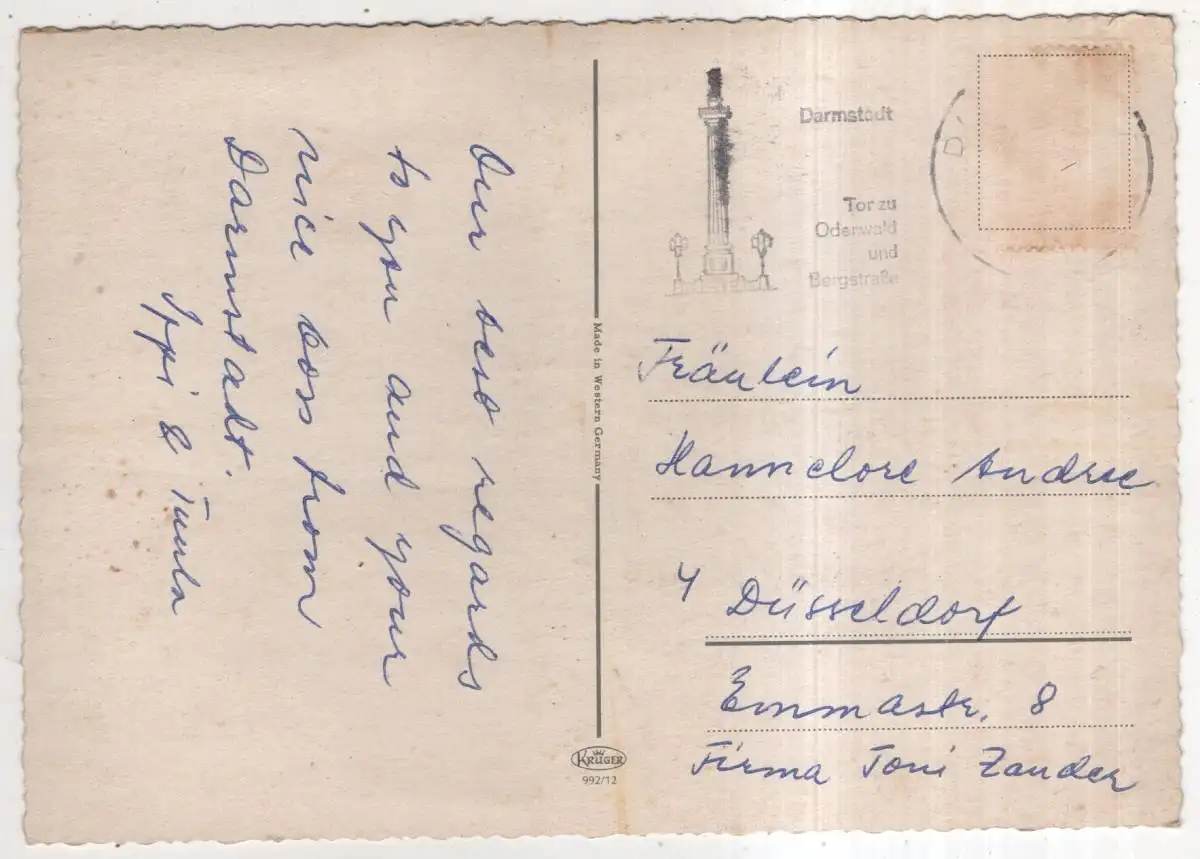 Our best regards
to you and your
nice boss from
Darmstadt.
Ippi & Tuula
Darmstadt
Tor zu
Odenwald
und
Bergstraße
D
Made in Western Germany
Fräulein
Hannelore Andree
4 Düsseldorf
Emmastr. 8
Firma Toni Zander
KRÜGER
992/12